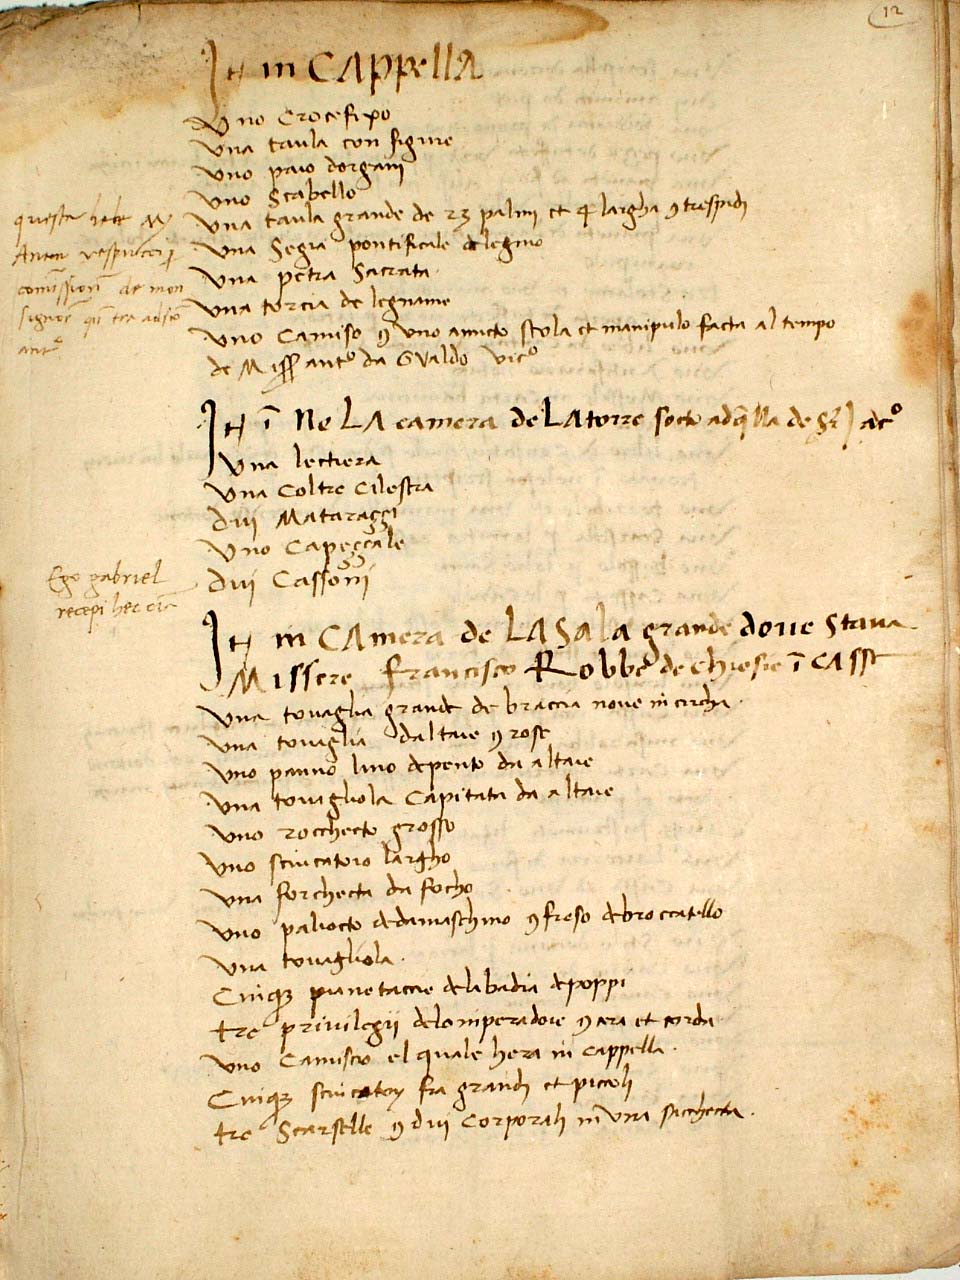 12
It in Cappella
Uno Crocefixo
Una taula con figure
Uno paio dorgani
Uno Scabello
Una taula grande de 23 palmi et 4 largha 9 trespidi
Una Segia pontificale de legno
Una petra Sacrata
Una torcia de legname
Uno Camiso 9 uno amicto stola et manipulo facta al tempo
de Miss anto da Gualdo vico
questa hebe
Anton vespucci p
comission de mon
signor
anto
It ī Ne LA camera de LA torre socto adqlla de
Una lectiera
Una Coltre Cilestra
dui Matarazzi
Uno Capezzale
dui Cassoni
Ego gabriel
recepi hec
It in CAmera de LA SaLa grande doue Staua
Missere francisco Robbe de chiesie ī Casse
Una touaglia grande de braccia noue in circha
Una touaglia daltare 9 rose
Uno panno lino depento da altare
Una touagliola Capitata da altare
Uno rocchecto grosso
Uno sciucatoio largho
Una forchecta da focho
Uno paliocto de damaschino 9 freso de broccatello
Una touagliola
Cinq3 pianetacce de la badia de poppi
tre privilegii delo imperadore 9 cera et corda
Uno Camiscio el quale hera in Cappella
Cinq3 sciucatoy fra grandi et piccoli
tre Scarselle 9 dui Corporali in una sacchecta